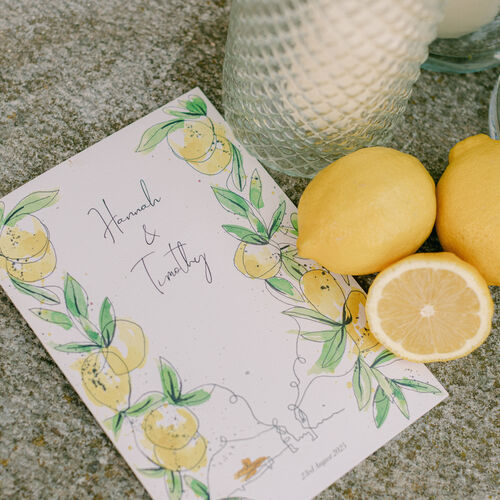 Hannah
&
Timothy
23rd August 2025